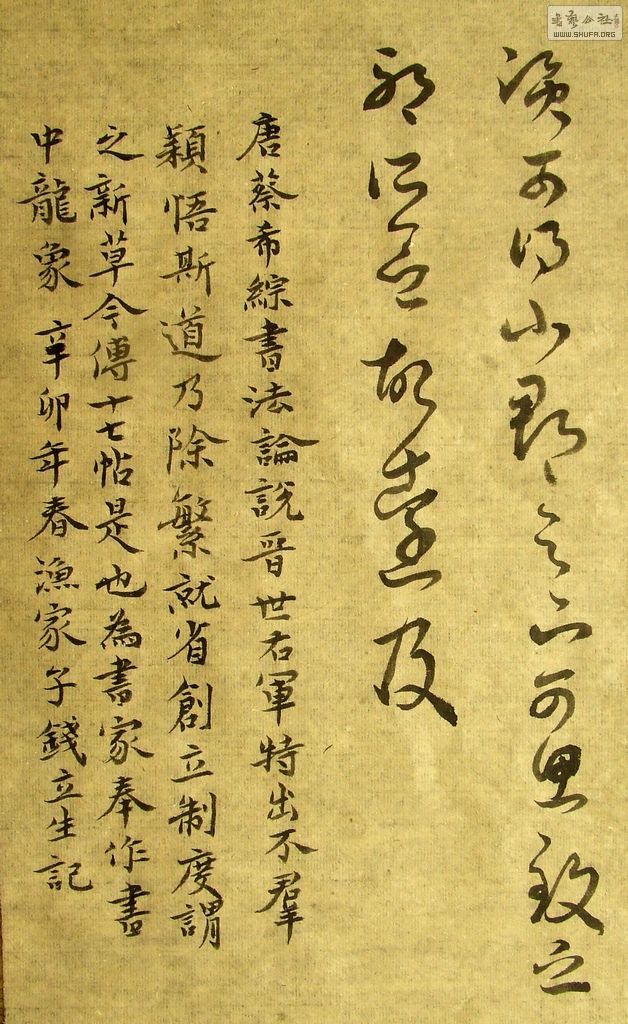 資可得小郡足下可思致之
耶所念故遠及
唐蔡希綜書法論說晉世右軍特出不羣
穎悟斯道乃除繁就省創立制度謂
之新草今傳十七帖是也為書家奉作書
中龍象 辛卯年春漁家子錢立生記
書藝公社
WWW.SHUFA.ORG